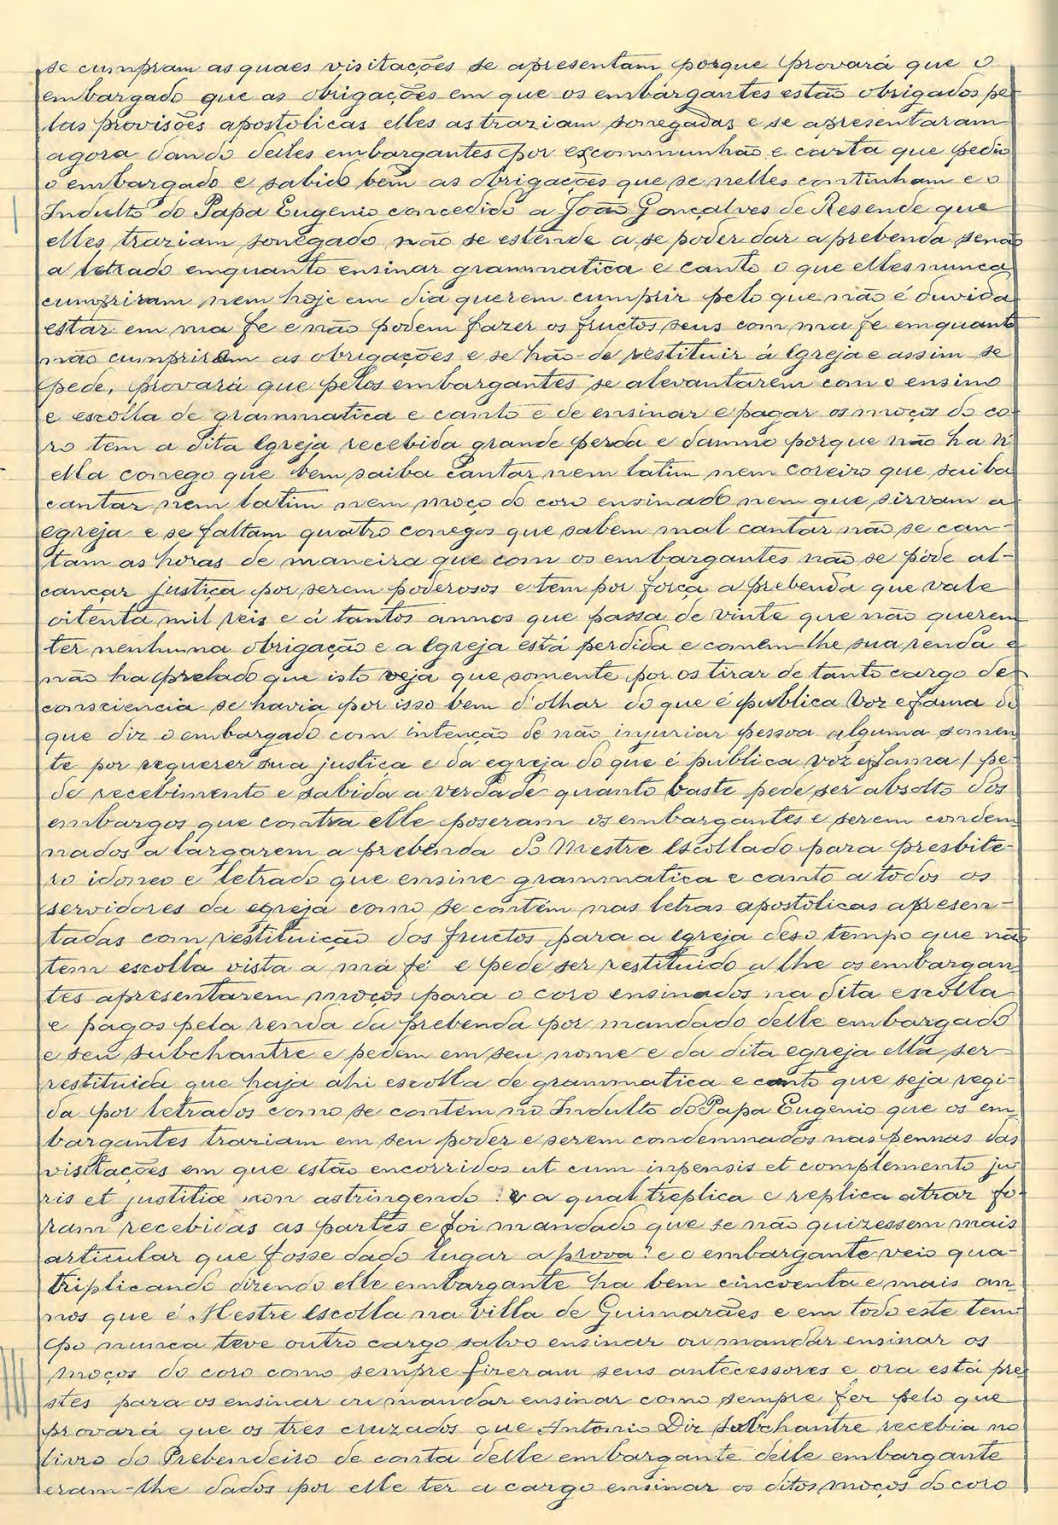 se cumpram as quaes visitações se apresentam porque provará que o
embargado que as obrigações em que os embargantes estão obrigados pe-
las provisões apostolicas elles as traziam sonegadas e se apresentaram
agora dando delles embargantes por excommunhão e carta que pediu
o embargado e sabido bem as obrigações que se nelles continham e o
Indulto do Papa Eugenio concedido a João Gonçalves de Resende que
elles traziam sonegado não se estende a se poder dar a prebenda senão
a letrado emquanto ensinar grammatica e canto o que elles nunca
cumpriram nem hoje em dia querem cumprir pelo que não é duvida
estar em ma fe e não podem fazer os fructos seus com ma fe emquanto
não cumprirem as obrigações e se hão-de restituir á Igreja e assim se
pede, provará que pelos embargantes se alevantarem com o ensino
e escolla de grammatica e canto e de ensinar e pagar os moços do co-
ro tem a dita Igreja recebida grande perda e damno porque não ha n'
ella conego que bem saiba cantar nem latim nem coreiro que saiba
cantar nem latim nem moço do coro ensinado nem que sirvam a
egreja e se faltam quatro conegos que sabem mal cantar não se can-
tam as horas de maneira que com os embargantes não se póde al-
cançar justiça por serem poderosos e tem por força a prebenda que vale
oitenta mil reis e á tantos annos que passa de vinte que não querem
ter nenhuma obrigação e a Igreja está perdida e comem-lhe sua renda e
não ha prelado que isto veja que somente por os tirar de tanto cargo de
consciencia se havia por isso bem d'olhar do que é publica voz e fama do
que diz o embargado com intenção de não injuriar pessoa alguma somen
te por requerer sua justica e da egreja do que é publica voz e fama / pe-
de recebimento e sabida a verdade quanto baste pede ser absolto dos
embargos que contra elle poseram os embargantes e serem conden
nados a largarem a prebenda do Mestre Escollado para presbite-
ro idoneo e letrado que ensine grammatica e canto a todos os
servidores da egreja como se contém nas letras apostolicas apresen-
tadas com restituição dos fructos para a Igreja deso tempo que não
tem escolla vista a má fé e pede ser restituido a lhe os embargan
tes apresentarem moços para o coro ensinados na dita escolla
e pagos pela renda da prebenda por mandado delle embargado
e seu subchantre e pedem em seu nome e da dita egreja ella ser
restituida que haja ahi escolla de grammatica e canto que seja regi-
da por letrados como se contem no Indulto do Papa Eugenio que os em
bargantes traziam em seu poder e serem condemnados nas pennas das
visitações em que estão encorridos ut cum inpensis et complemento ju-
ris et justitiæ non astringendo : e a qual treplica e replica atraz fo-
ram recebidas as partes e foi mandado que se não quizessem mais
articular que fosse dado lugar a prova: e o embargante veio qua-
triplicando dizendo elle embargante ha bem cincoenta e mais an
nos que é Mestre Escolla na Villa de Guimarães e em todo este tem
po nunca teve outro cargo salvo ensinar ou mandar ensinar os
moços do coro como sempre fizeram seus antecessores e ora está pre
stes para os ensinar ou mandar ensinar como sempre fez pelo que
provará que os tres cruzados que Antonio Diz subchantre recebia no
livro do Prebendeiro de conta delle embargante delle embargante
eram-lhe dados por elle ter a cargo ensinar os ditos moços do coro